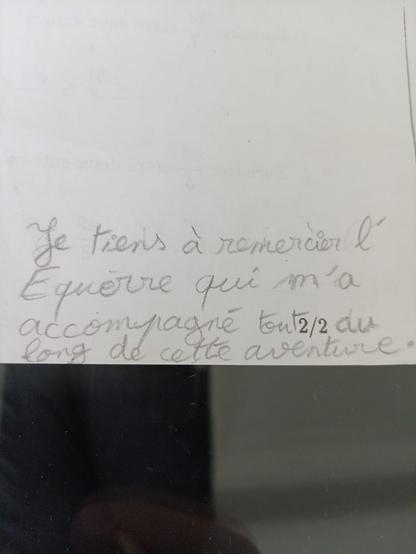 Je tiens à remercier l'
Equerre qui m'a
accompagné tout 2/2 du
long de cette aventure.